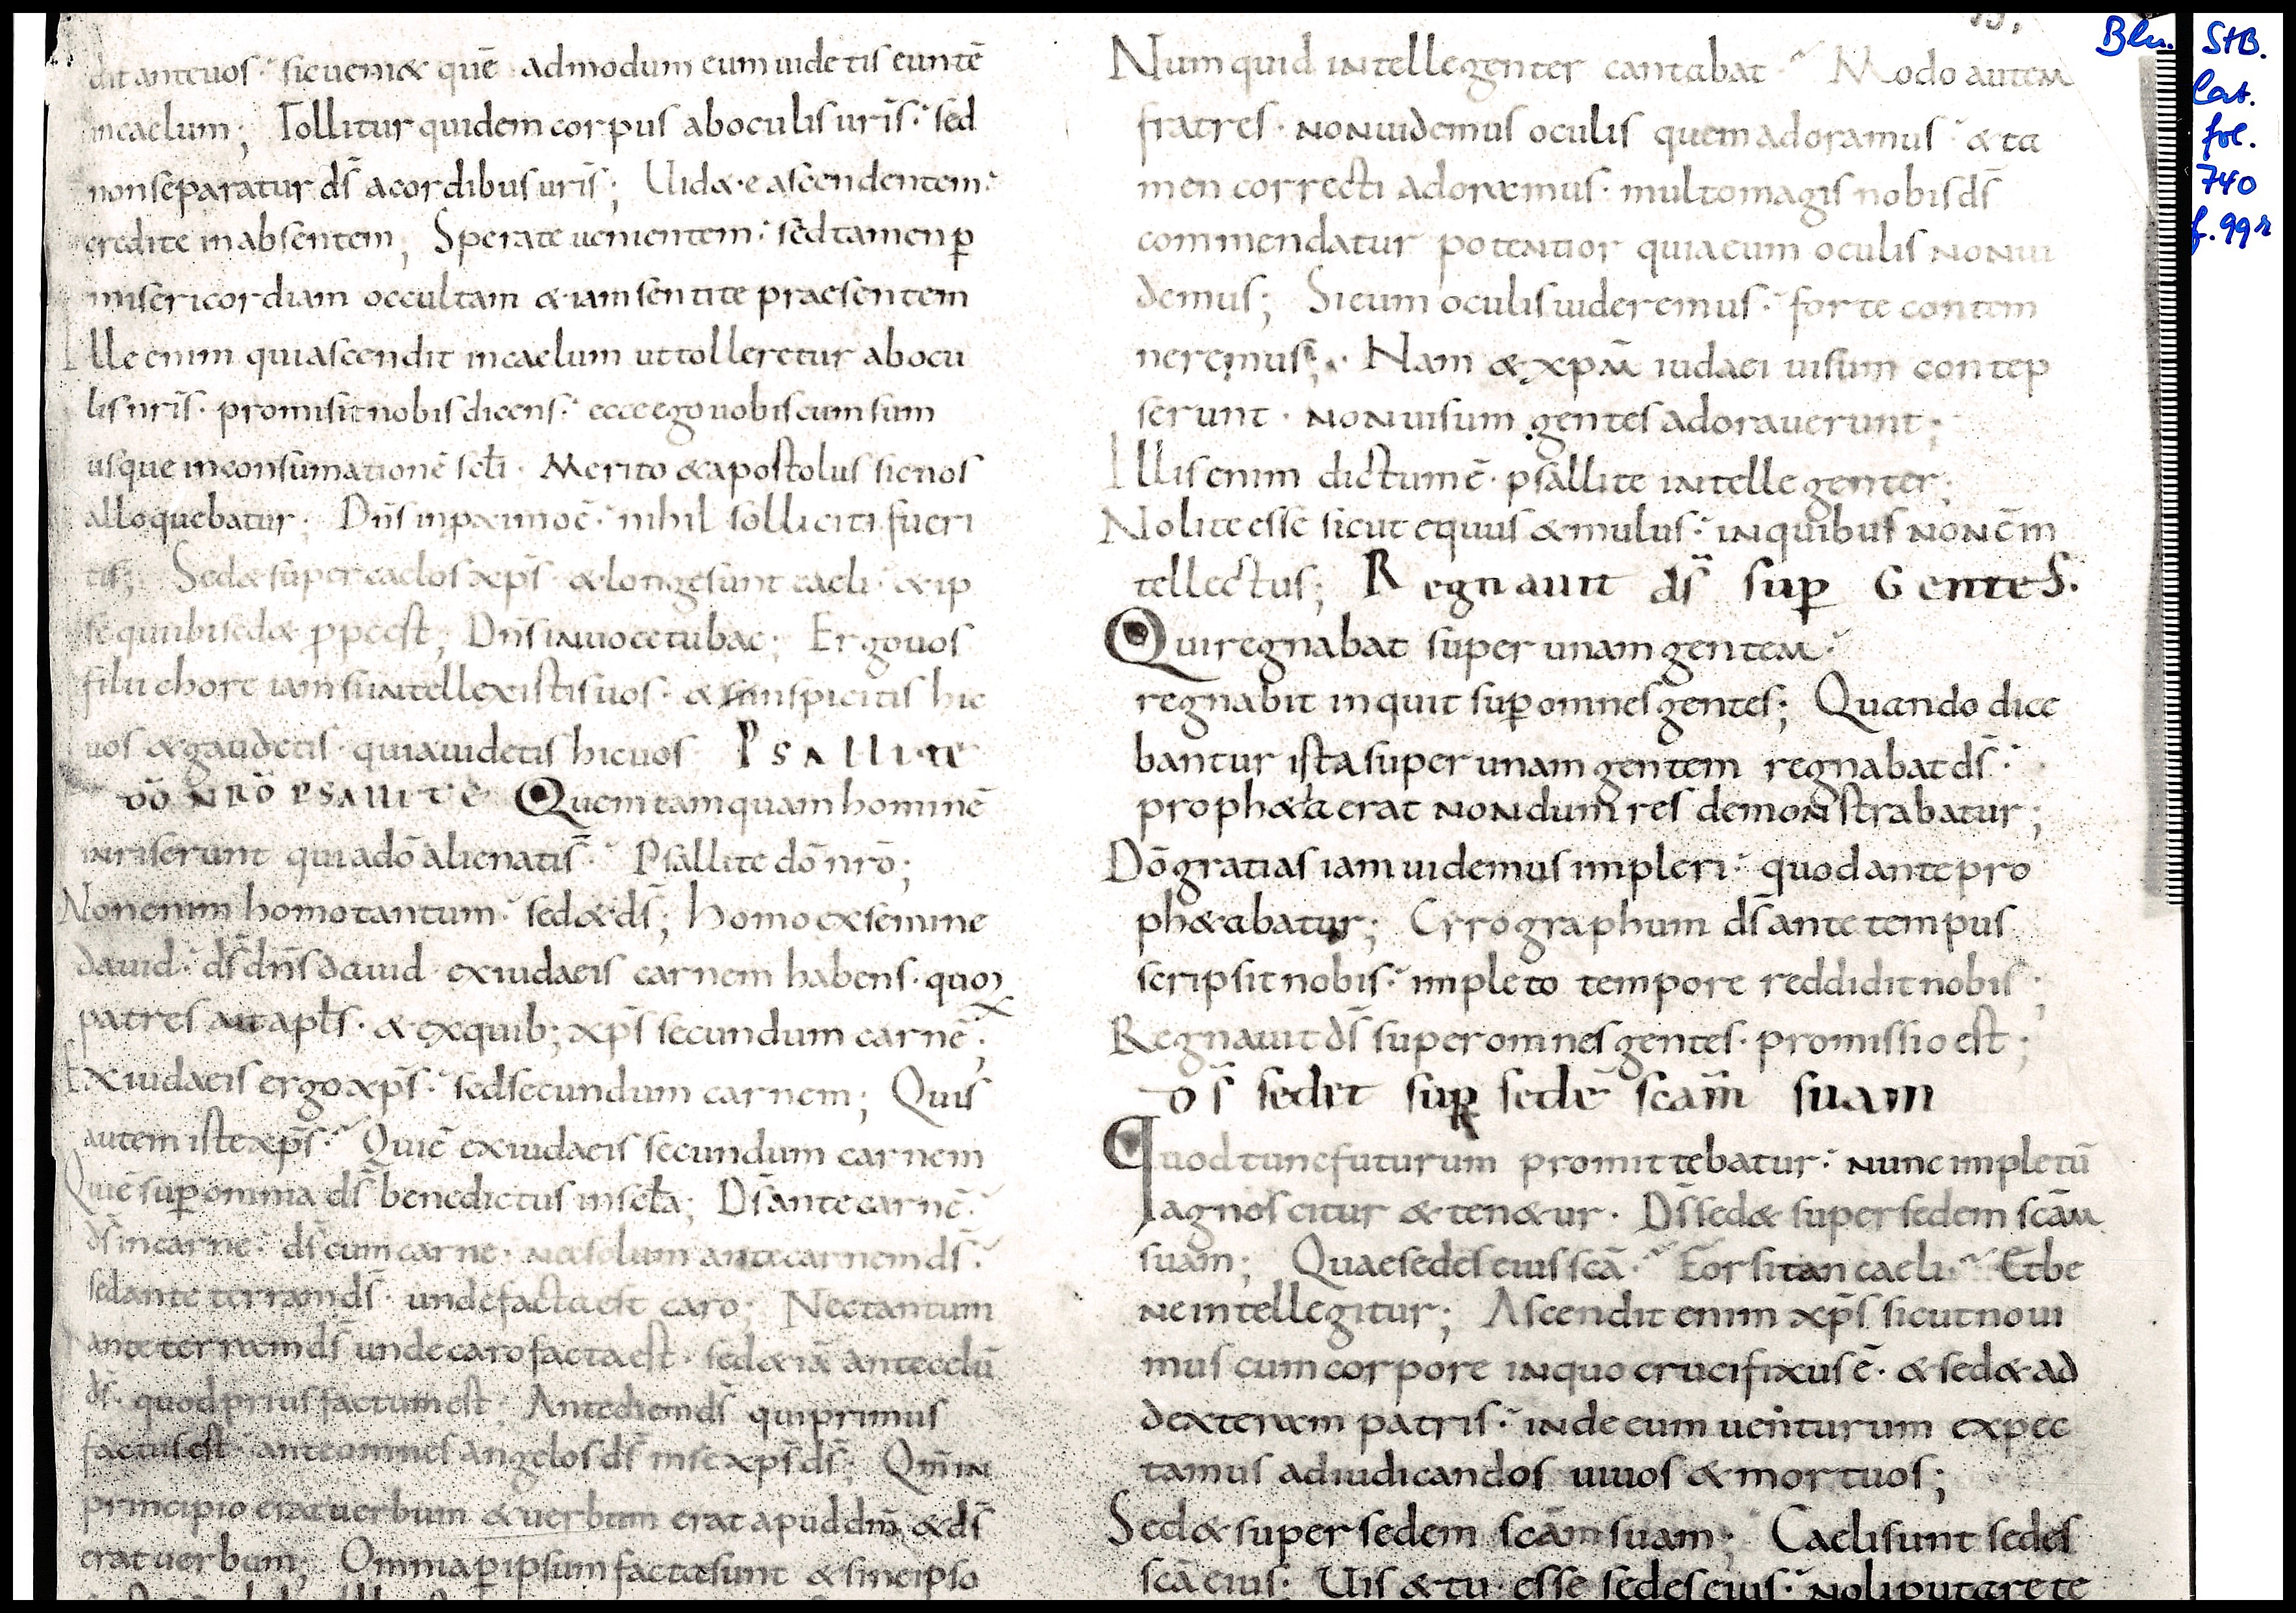 dit ante uos· sic ueni& quē admodum eum uidetis euntē
in caelum; Tollitur quidem corpus ab oculis ur̄is· sed
non separatur d̄s a cordibus ur̄is; Uid&e ascendentem·
credite in absentem; Sperate uenientem· sed tamen ꝑ
misericordiam occultam & iam sentite praesentem
Ille enim qui ascendit in caelum ut tolleretur ab ocu
lis ur̄is· promisit nobis dicens· ecce ego uobiscum sum
usque in consumationē sc̄li· Merito & apostolus sic nos
alloquebatur; Dn̄s in proximo ē· nihil solliciti fueri
tis; Sed& super caelos xp̄s· & longe sunt caeli· & ip
se qui ibi sed& ꝓpe est; Dn̄s in uoce tubae; Ergo uos
filii chore iam si intellexistis uos· & si inspicitis hic
uos & gaudetis· quia uidetis hic uos Psallite
dō nrō psallite Quem tamquam hominē
inriserunt qui a dō alienati s̄· Psallite dō nrō;
Non enim homo tantum· sed & d̄s; homo ex semine
dauid· d̄s dn̄s dauid· ex iudaeis carnem habens· quoꝝ
patres aut apl̄s· & ex quib; xp̄s secundum carnē;
Ex iudaeis ergo xp̄s· sed secundum carnem; Quis
autem iste xp̄s· Qui ē ex iudaeis secundum carnem
Qui ē suꝑ omnia d̄s benedictus in sc̄la; D̄s ante carnē·
d̄s in carne· d̄s cum carne· nec solum ante carnem d̄s·
sed ante terram d̄s· unde facta est caro; Nec tantum
ante terram d̄s unde caro facta est· sed & iā ante celū
d̄s· quod prius factum est; Ante diem d̄s qui primus
factus est· ante omnes angelos d̄s ipse xp̄s d̄s; Qm̄ in
principio erat uerbum & uerbum erat apud dm̄ & d̄s
erat uerbum; Omnia ꝑ ipsum facta sunt & sine ipso
15,
Numquid intellegenter cantabat· Modo autem
fratres· non uidemus oculis quem adoramus· & ta
men correcti adoramus· multo magis nobis d̄s
commendatur potentior quia eum oculis non ui
demus; Si eum oculis uideremus· forte contem
neremus; Nam & xpm̄ iudaei uisum contep
serunt· non uisum gentes adorauerunt;
Illis enim dictum ē· psallite intellegenter;
Nolite esse sicut equus & mulus· in quibus non ē in
tellectus; Regnauit d̄s suꝑ Gentes·
Qui regnabat super unam gentem·
regnabit inquit suꝑ omnes gentes; Quando dice
bantur ista super unam gentem regnabat d̄s·
proph&ia erat nondum res demonstrabatur;
Dō gratias iam uidemus impleri· quod ante pro
ph&abatur; Cyrographum d̄s ante tempus
scripsit nobis· impleto tempore reddidit nobis;
Regnauit d̄s super omnes gentes· promissio est;
D̄s sedet suꝑ sedē scām suam
Quod tunc futurum promittebatur· nunc impletū
agnoscitur & ten&ur· D̄s sed& super sedem scām
suam; Quae sedes eius scā· Forsitan caeli· Et be
ne intellegitur; Ascendit enim xp̄s sicut noui
mus cum corpore in quo crucifixus ē· & sed& ad
dexteram patris· inde eum uenturum expec
tamus ad iudicandos uiuos & mortuos;
Sed& super sedem scām suam; Caeli sunt sedes
scā eius· Uis & tu esse sedes eius· noli putare te
Bln.
StB.
lat.
fol.
740
f. 99r